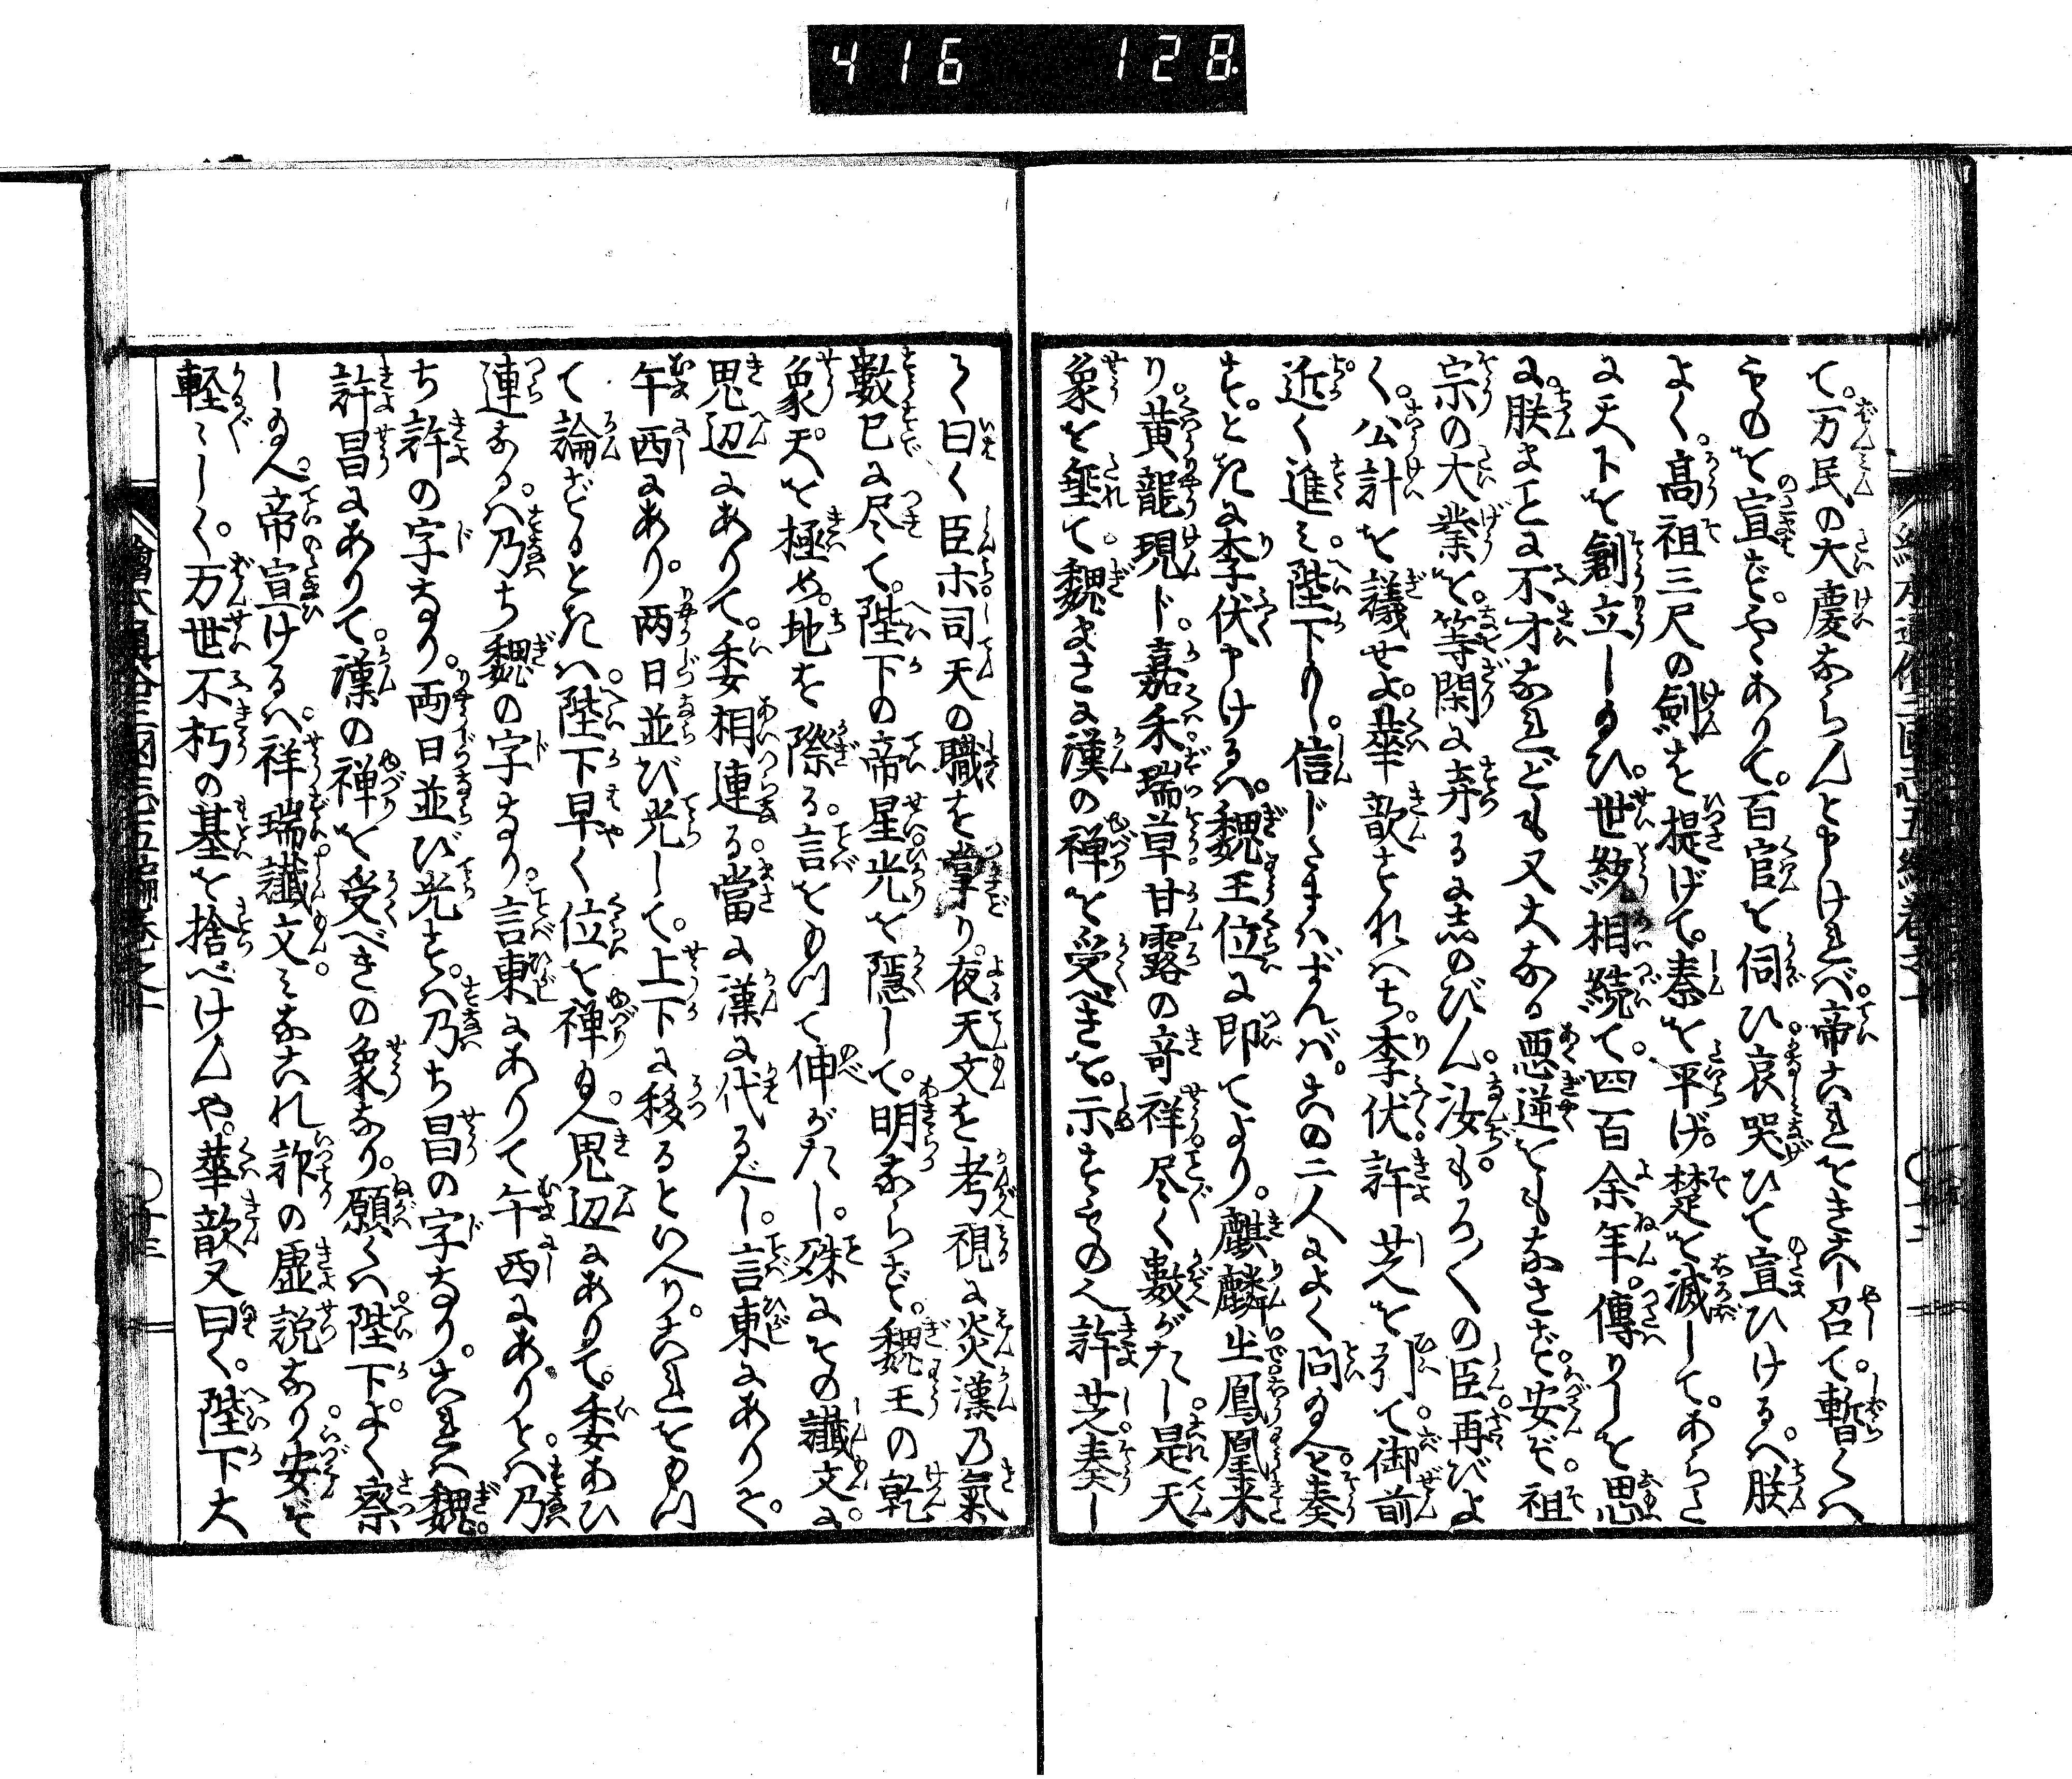 416 128
て。万民の大慶ならんと申ければ。帝これをきこし召て。暫くハ
ものを宣ず。やゝありて。百官を伺ひ。哀哭ひて宣ひけるハ。朕
よく。高祖三尺の劍を提げて。秦を平げ。楚を滅して。あらた
に天下を創立し給ひ。世紗相続て。四百余年。傳りしを思
に。朕まことに不才なれども又大なる悪逆をもなさず。安ぞ。祖
宗の大業を。等閑に弃るに忍のびん。汝もろ〱の臣。再びよ
く。公計を議せよ。華歆すなハち。李伏。許芝を引て。御前
近く進ミ。陛下もし。信じたまハずんバ。この二人によく問給へと奏
す。ときに李伏申けるハ。魏王位に即てより。麒麟出鳳凰来
り。黄龍現ド。嘉禾。瑞草。甘露の竒祥。尽く數がたし。是天
象を垂て。魏まさに漢の禅を受べきを。示すもの也。許芝。奏し
て曰く臣ホ司天の職を掌り。夜天文を考視に炎漢乃氣
數已に尽て。陛下の帝星。光を隠して。明ならず。魏王の乾
象。天を極め。地を際る。言をもつて伸がたし。殊にその讖文に。
鬼辺にありて。委相連る。當に漢に代るべし。言東にありて。
午西にあり。両日並び光して。上下に移るといへり。これをもつ
て論ずるときハ。陛下早く位を禅給へ。鬼辺にありて。委あひ
連なるハ。乃ち魏の字なり。言東にありて午西にありとハ。乃
ち許の字なり。両日並び光すハ。乃ち昌の字なり。これハ魏。
許昌にありて。漢の禅を受べきの象なり。願くハ。陛下。よく察
し給へ。帝宣けるハ。祥瑞讖文。ミなこれ詐の虚説なり。安ぞ
軽〻しく。万世不朽の基を捨べけんや。華歆又曰く。陛下大